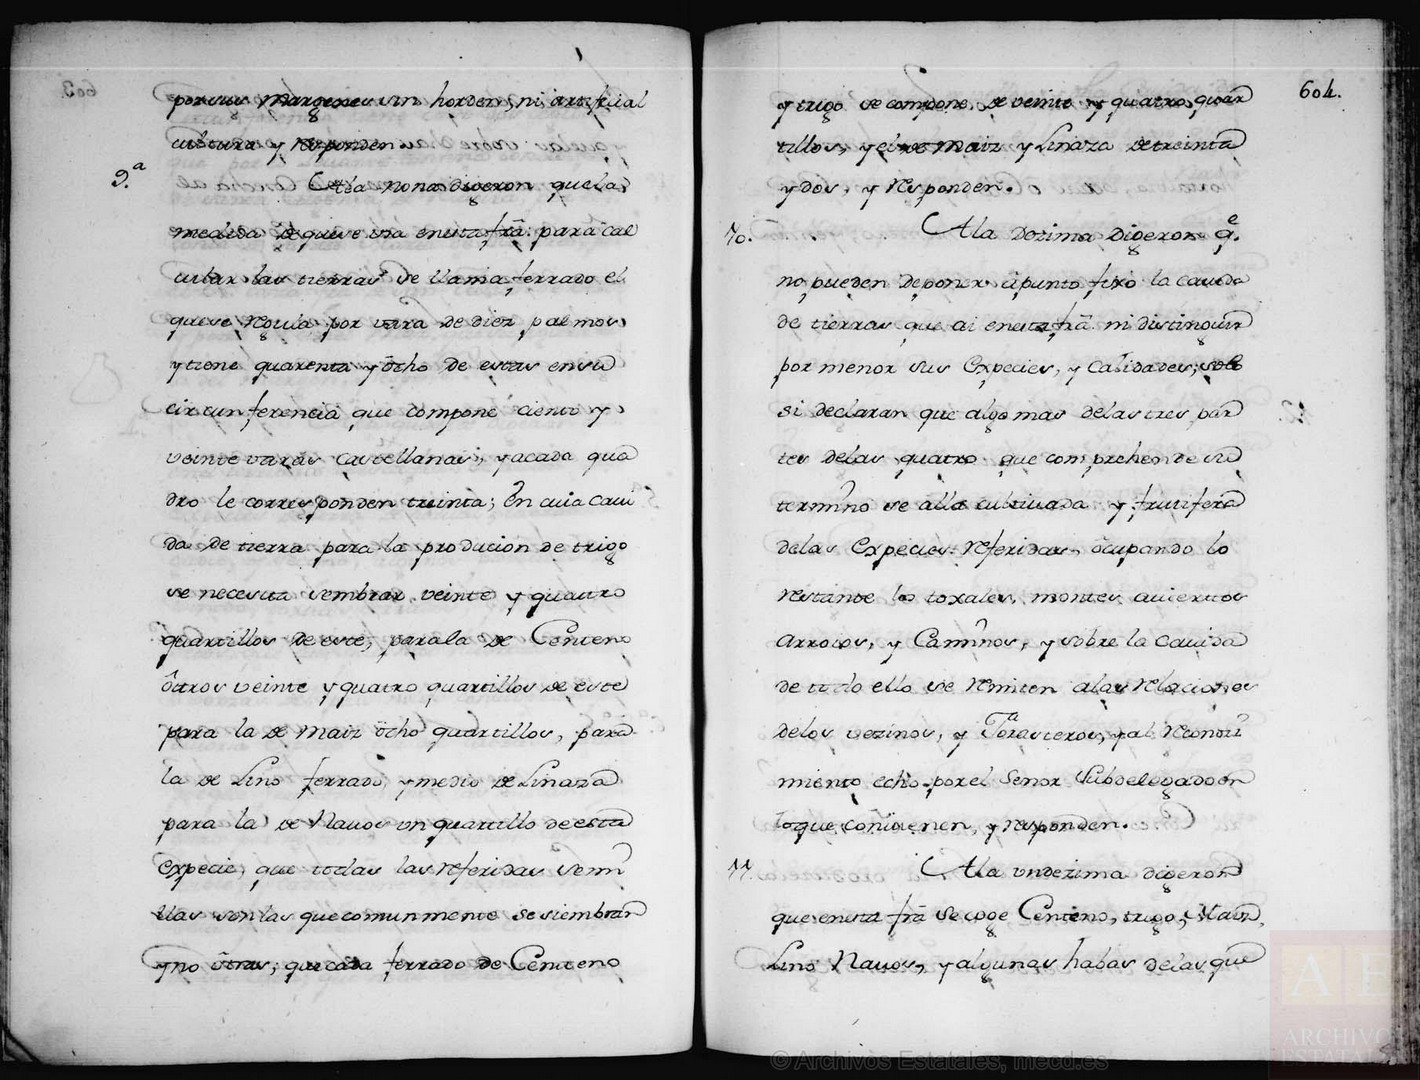 por sus margenes sin horden, ni artificial
cultura y responden
9.ª
Ala nona digeron que la
medida de que se usa en esta frã. para cal
cular las tierras se llama ferrado el
que se regula por vara de diez palmos
y tiene quarenta y ocho de estas en su
circunferencia que compone ciento y
veinte varas castellanas, y a cada qua
dro le corresponden treinta; En cuia cavi
da de tierra para la producion de trigo
se necesita sembrar veinte y quatro
quartillos de este, para la de Centeno
otros veinte y quatro quartillos de este
para la de Maiz ocho quartillos, para
la de Lino ferrado y medio de Linaza
para la de Navos un quartillo de esta
Expecie, que todas las referidas semi
llas son las que comunmente se siembran
y no otras; que cada ferrado de Centeno
604.
y trigo se compone de veinte y quatro quar
tillos, y el de Maiz y Linaza de treinta
y dos, y responden.
10.
Ala Dezima Digeron q.e
no pueden deponer a punto fixo la cavida
de tierras que ai en esta frã. ni distinguir
por menor sus Expecies, y Calidades; solo
si declaran que algo mas de las tres par
tes de las quatro que comprehende su
termino se alla cultivada y frutifera
de las Expecies referidas, ocupando lo
restante lo toxales, montes aviertos
Arroios, y Caminos, y sobre la cavida
de todo ello se remiten a las relaciones
de los vezinos, y Forasteros, y al reconoci
miento echo por el Señor Subdelegado en
lo que combienen, y responden.
11.
Ala undezima digeron
que en esta frã se coge Centeno, trigo, Maiz,
Lino Navos, y algunas habas de las que
© Archivos Estatales, mecd.es
AE
ARCHIVOS
ESTATALES